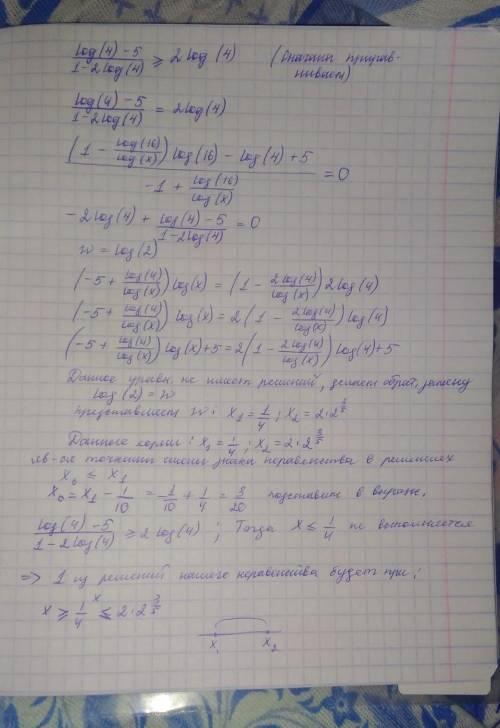 log(4) - 5 / 1 - 2log(4) ≥ 2 log (4) (Сначала приравниваем)
log(4) - 5 / 1 - 2log(4) = 2log(4)
(1 - log(16)/log(x)) log(16) - log(4) + 5 / -1 + log(16)/log(x) = 0
-2log(4) + log(4) - 5 / 1 - 2log(4) = 0
w = log(2)
(-5 + log(4)/log(x)) log(x) = (1 - 2log(4)/log(x)) 2log(4)
(-5 + log(4)/log(x)) log(x) = 2 (1 - 2log(4)/log(x)) log(4)
(-5 + log(4)/log(x)) log(x) + 5 = 2 (1 - 2log(4)/log(x)) log(4) + 5
Данное уравн. не имеет решений, делаем обрат. замену
log(2) = w
представляем w: x₁ = 1/4; x₂ = 2·2^(3/5)
Данные корни: x₁ = 1/4; x₂ = 2·2^(3/5)
яв-ся точками смены знака неравенства в решениях
x₀ ≤ x₁
x₀ = x₁ - 1/10 = -1/10 + 1/4 = 3/20 подставим в выраж.
log(4) - 5 / 1 - 2log(4) ≥ 2log(4); Тогда x ≤ 1/4 не выполняется
=> 1 из решений нашего неравенства будет при:
x ≥ 1/4 x ≤ 2·2^(3/5)
x₁ x₂